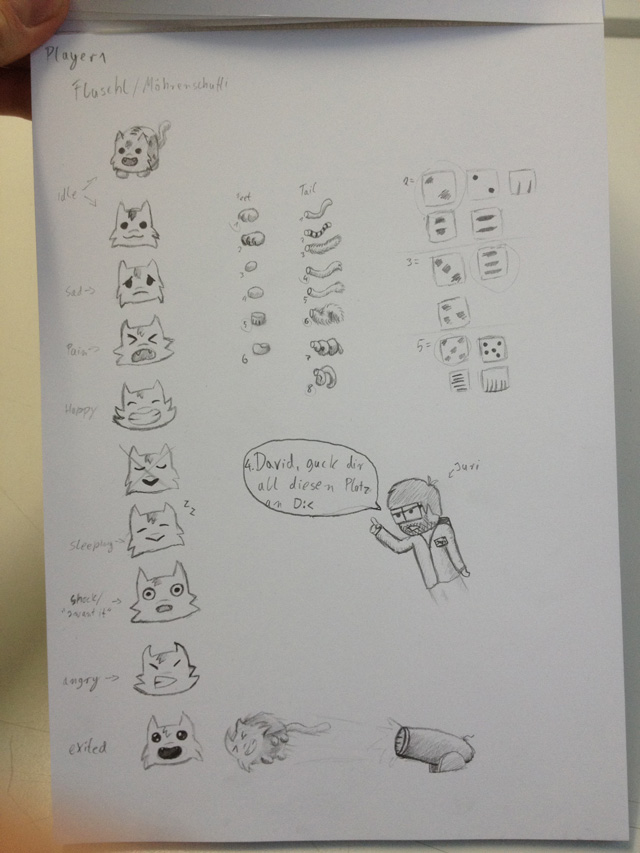 Player 1
Fluschl/Möhrenschuffi
Idle
Sad
Pain
Happy
zz
sleeping
shock/
angry
exited
Feet
1
2
3
4
5
6
Tail
1
2
3
4
5
6
7
8
2=
3=
5=
David, guck dir
all diesen Platz
an D:<
Juri